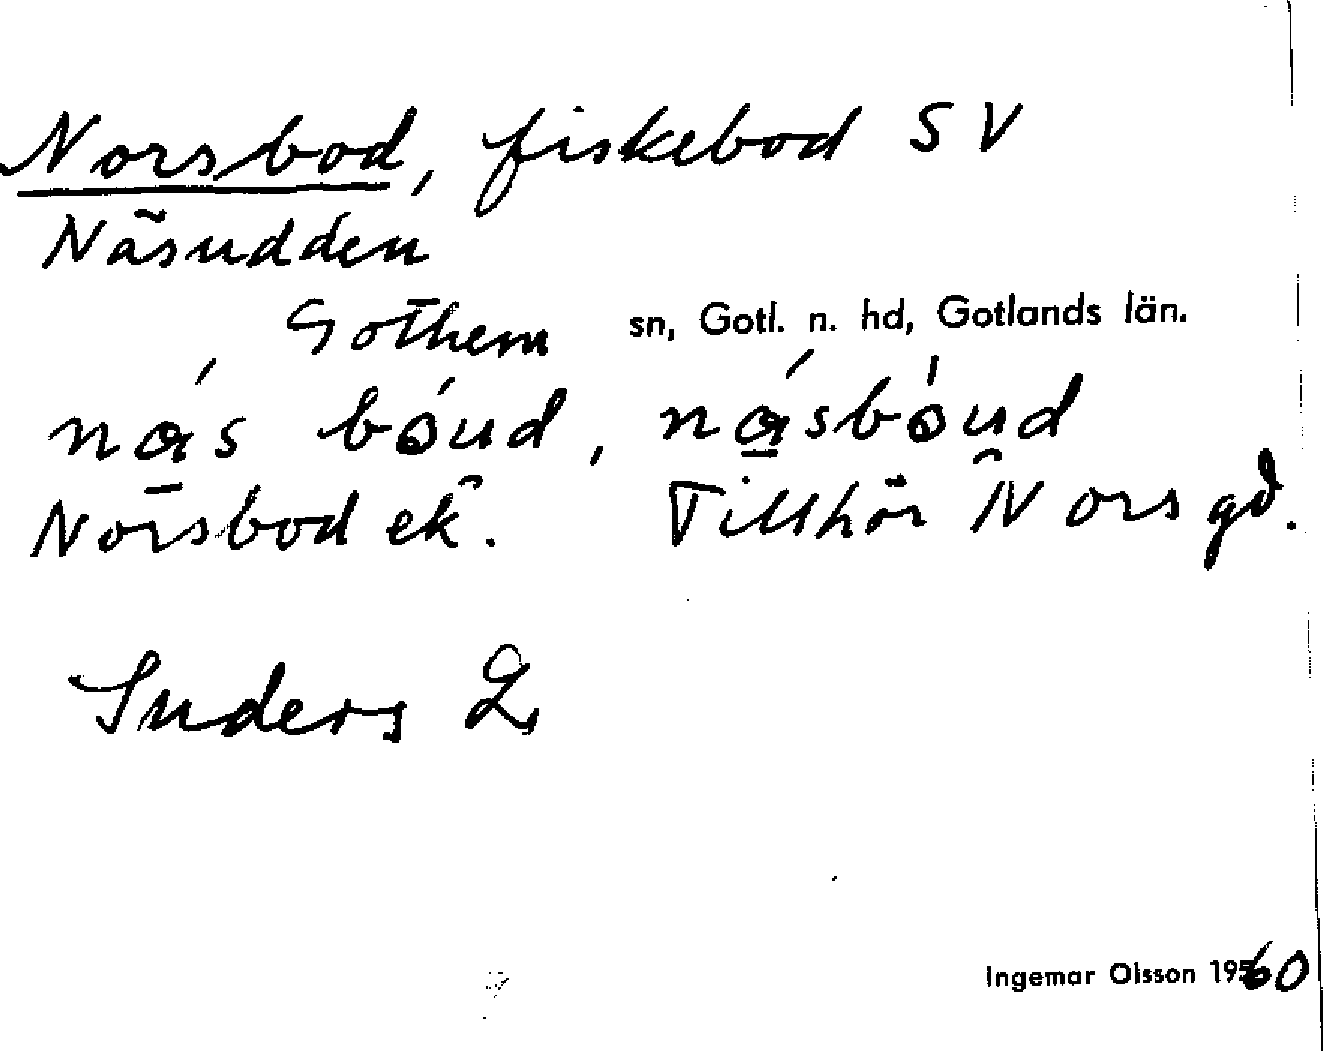 Norsbod, fiskebod SV
Näsudden
Gothem sn, Gotl. n. hd, Gotlands län.
nás bóud, násbóud
Norsbod ek. Tillhör Nors gd.
Suders L
Ingemar Olsson 1960